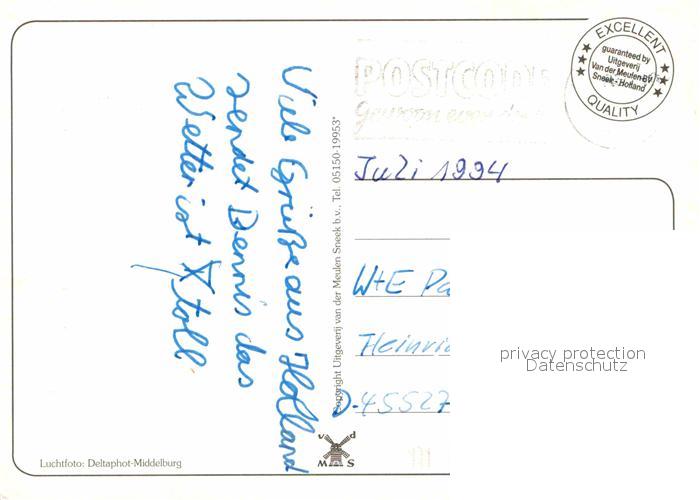 Viele Grüße aus Holland
sendet Dennis das
Wetter ist toll
Juli 1994
W+E
D-45527
POSTCODE
EXCELLENT
guaranteed by
Uitgeverij
Van der Meulen BV
Sneek - Holland
QUALITY
Copyright Uitgeverij van der Meulen Sneek b.v., Tel. 05150-19953*
v d
M S
Luchtfoto: Deltaphot-Middelburg
privacy protection
Datenschutz